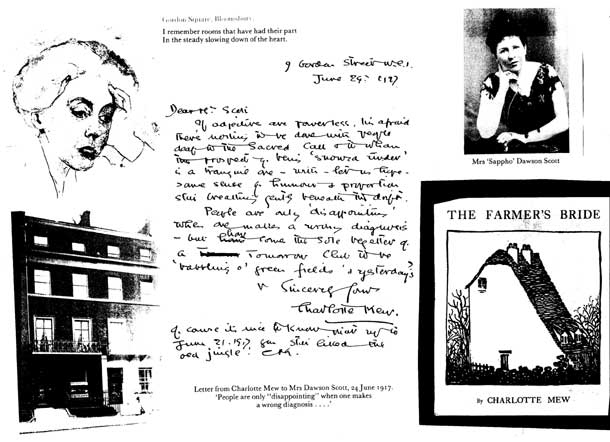 Gordon Square, Bloomsbury.
I remember rooms that have had their part
In the steady slowing down of the heart.
9 Gordon Street W.C.1.
June 24:
Dear Mrs Scott
If adjective are powerless. I'm afraid
there nothing to be done with people
deaf to the Sacred Call & to whom
the prospect of being 'snowed under'
is a tranquil one – with – let us hope –
some sense of humour & proportion
still breathing gently beneath the drift.
People are only 'disappointing'
when one makes a wrong diagnosis
– but how come the sole begetter of
a Tomorrow Club to be
'babbling o' green fields' & yesterday's?
Sincerely yours
Charlotte Mew.
Of course it's nice to know that up to
June 21. 1917. you still liked this
old jingle! CM.
Letter from Charlotte Mew to Mrs Dawson Scott, 24 June 1917.
'People are only "disappointing" when one makes
a wrong diagnosis . . . .'
Mrs 'Sappho' Dawson Scott
THE FARMER'S BRIDE
By CHARLOTTE MEW